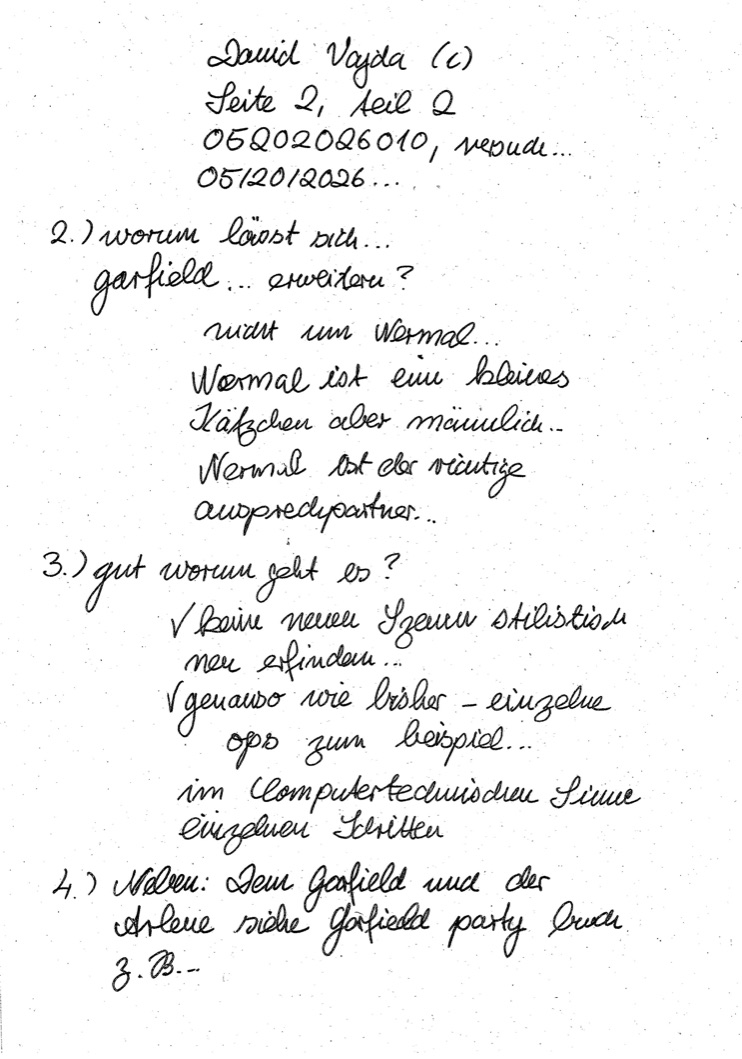 David Vajda (c)
Seite 2, teil 2
05202026010, versude...
05/20/2026...
2.) worum lässt sich...
garfield... erweitern?
nicht um Nermal...
Nermal ist ein kleines
Kätzchen aber männlich..
Nermal ist der richtige
ansprechpartner...
3.) gut worum geht es?
√ keine neuen Szenen stilistisch
neu erfinden...
√ genauso wie bisher - einzelne
ops zum beispiel...
im Computertechnischen Sinne
einzelnen Schritten
4.) Neben: Dem Garfield und der
Arlene siehe Garfield party buch
z. B...